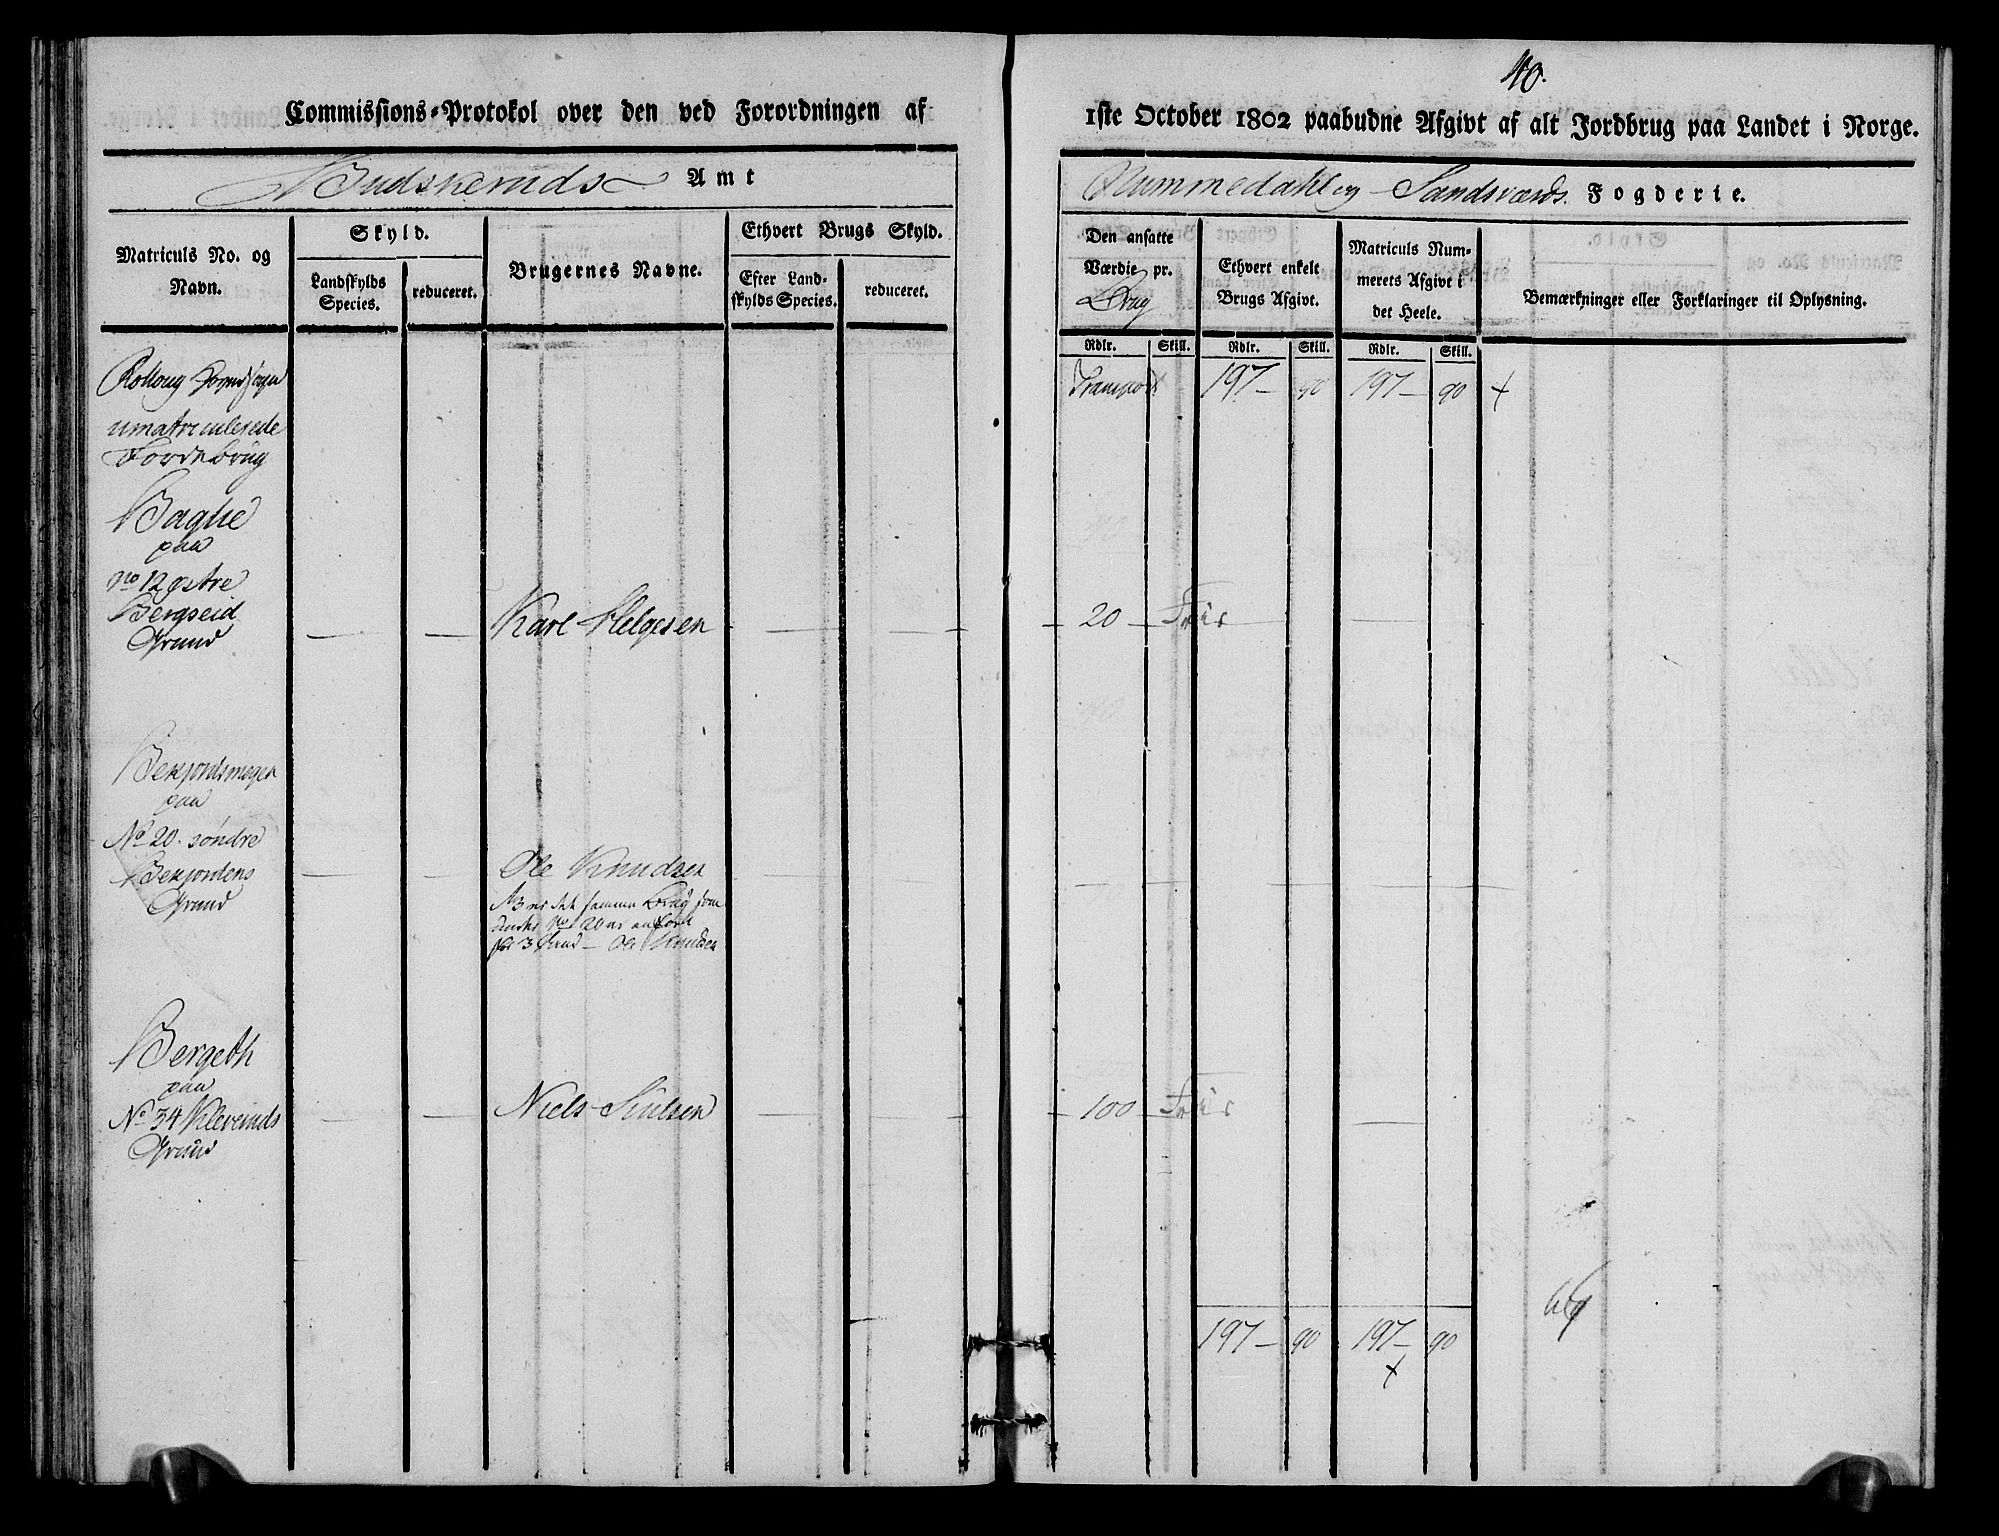 40.
Commissions-Protokol over den ved Forordningen af
1ste October 1802 paabudne Afgivt af alt Jordbrug paa Landet i Norge.
Budskeruds Amt
Nummedahl og Sandsværds Fogderie.
Matriculs No. og Navn.
Skyld.
Landskylds Species.
reduceret.
Brugernes Navne.
Ethvert Brugs Skyld.
Efter Landskylds Species.
reduceret.
Den ansatte Værdie pr. Brug
Ethvert enkelt Brugs Afgivt.
Matriculs Nummerets Afgivt i det Heele.
Bemærkninger eller Forklaringer til Oplysning.
Rdlr. Skill. Rdlr. Skill. Rdlr. Skill.
Rolloug
Transport 197 – 90 197 – 90
umatriculerede
Jordebrug
Baglie
paa
No 12 østre
Bergseid
Grund
Karl Helgesen
20 Frie
Bekjordsmogen
paa
No 20. søndre
Bekjordens
Grund
Ole Knudsen
NB er det samme Brug som
under No 20 er anført
for 3 Hud – Ole Knudsen
Bergeth
paa
No 34 Kleveruds
Grund
Niels
100 Frie
197 – 90 197 – 90